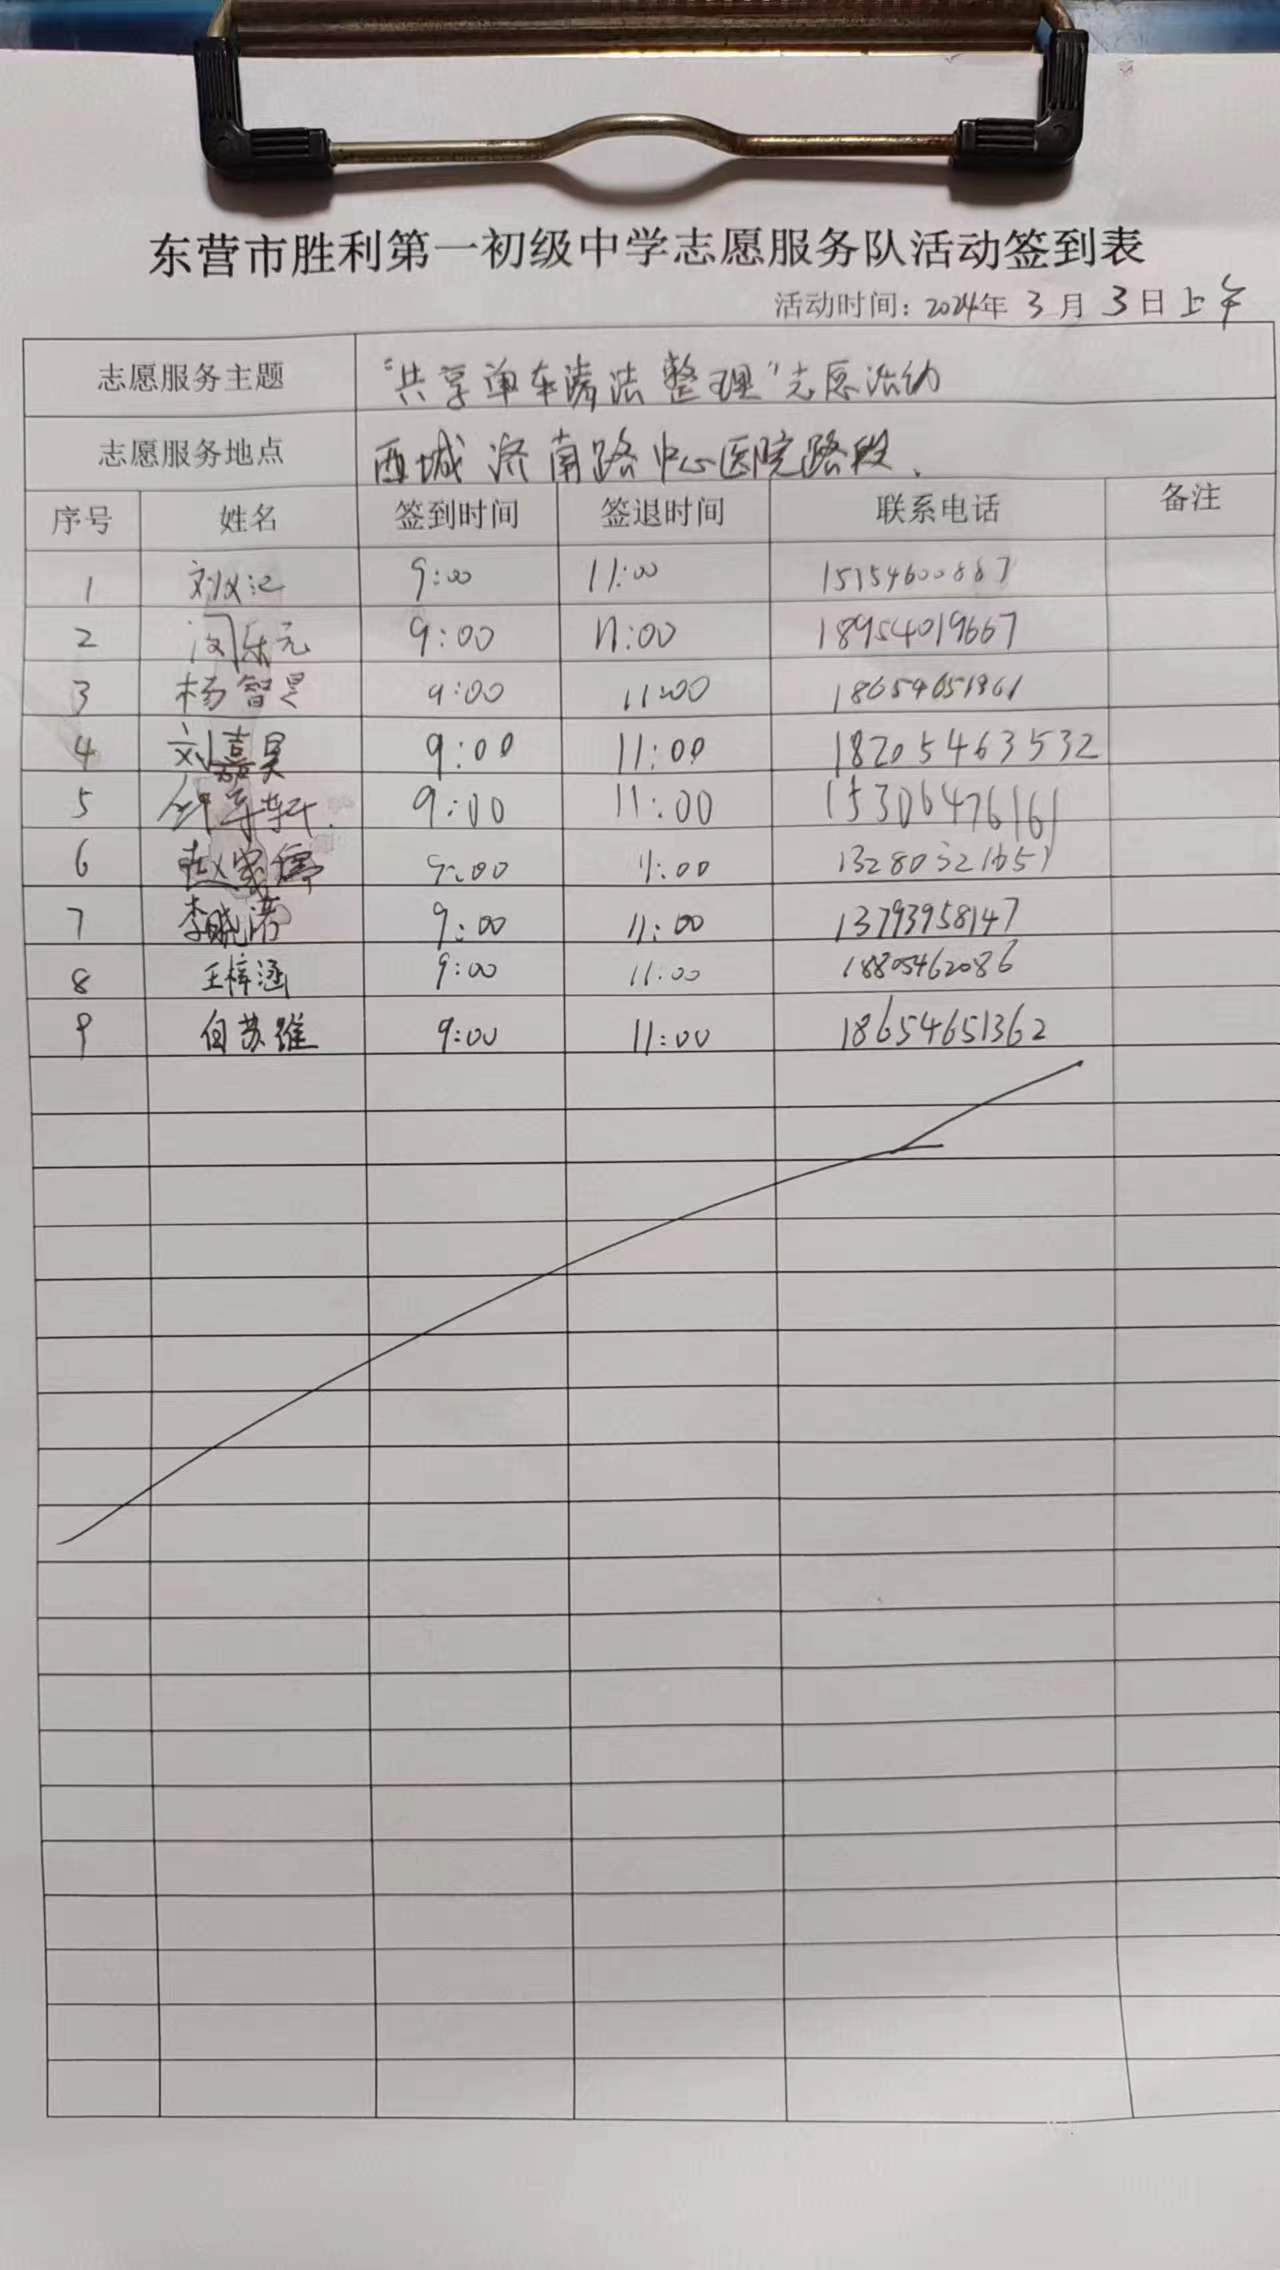 东营市胜利第一初级中学志愿服务队活动签到表
活动时间：2024年 3月 3日上午
志愿服务主题 “共享单车清洁整理”志愿活动
志愿服务地点 西城济南路中心医院路段.
序号 姓名 签到时间 签退时间 联系电话 备注
1 9:00 11:00
2 9:00 11:00 18954019667
3 杨智 9:00 11:00
4 刘嘉昊 9:00 11:00 18205463532
5 9:00 11:00 15306476161
6 赵家 9:00 11:00
7 李晓 9:00 11:00 13793958147
8 王梓涵 9:00 11:00 18805462086
9 白苏维 9:00 11:00 18654651362